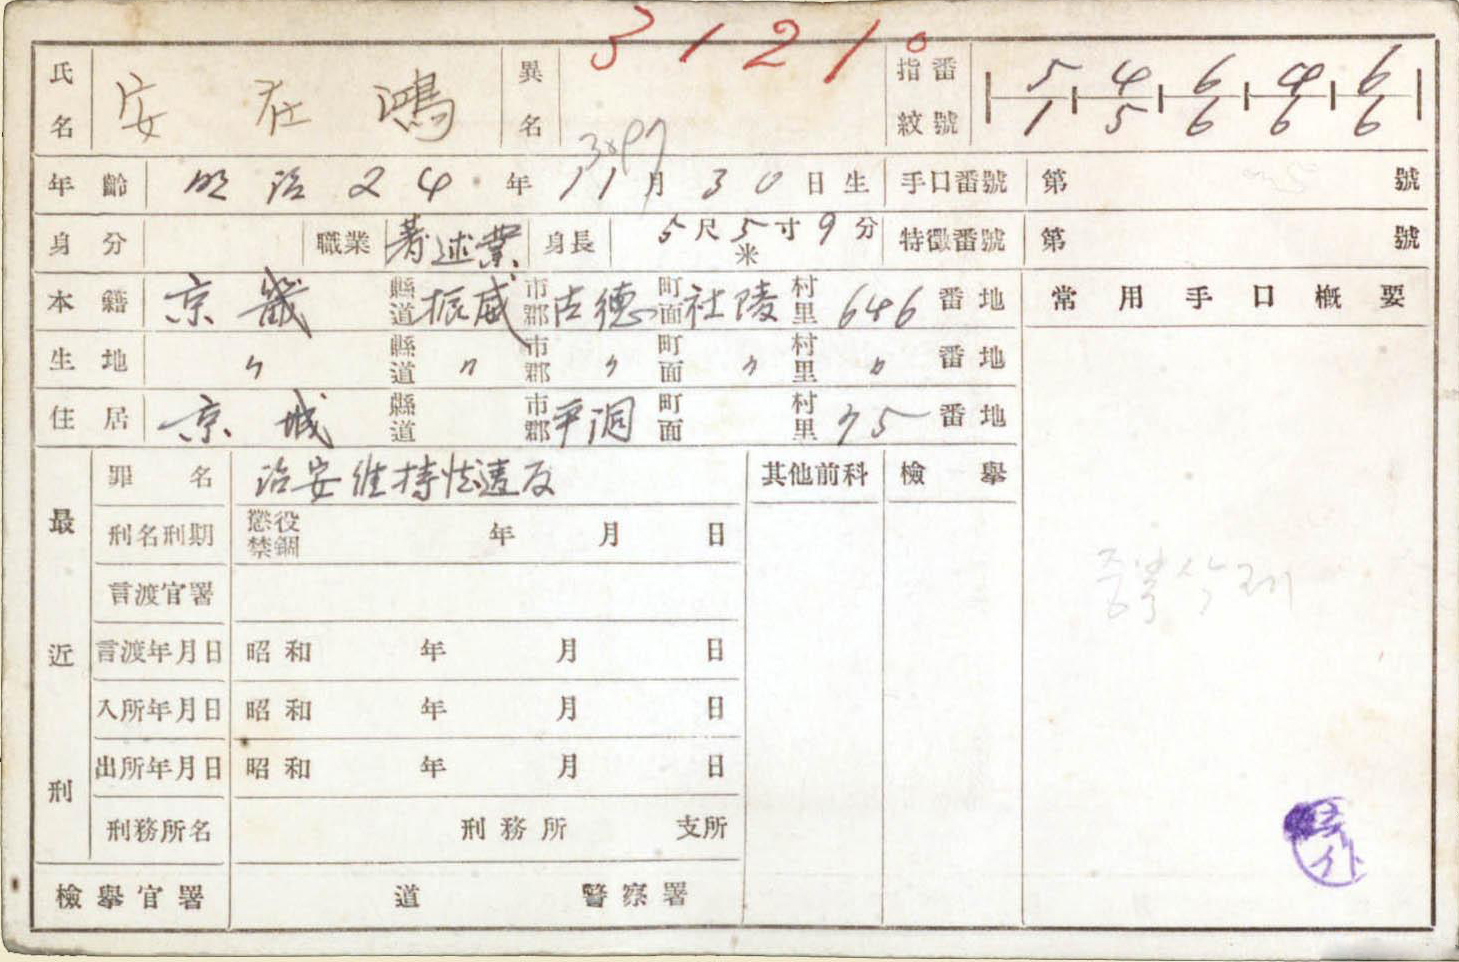 3121°
氏名 安在鴻 異名 指紋番號 5 4 6 4 6
1 5 6 6 6
年齡 明治24年11月30日生 手口番號 第 號
身分 職業 著述業 身長 5尺5寸9分 米 特徵番號 第 號
本籍 京畿 縣道 振威 市郡 古德 町面 社陵 村里 646 番地 常用手口槪要
生地 〃 縣道 〃 市郡 〃 町面 〃 村里 〃 番地
住居 京城 縣道 市郡 平洞 町面 村里 75 番地
最近刑 罪名 治安維持法違反 其他前科 檢擧
刑名刑期 懲役 禁錮 年 月 日
言渡官署
言渡年月日 昭和 年 月 日
入所年月日 昭和 年 月 日
出所年月日 昭和 年 月 日
刑務所名 刑務所 支所
檢擧官署 道 警察署